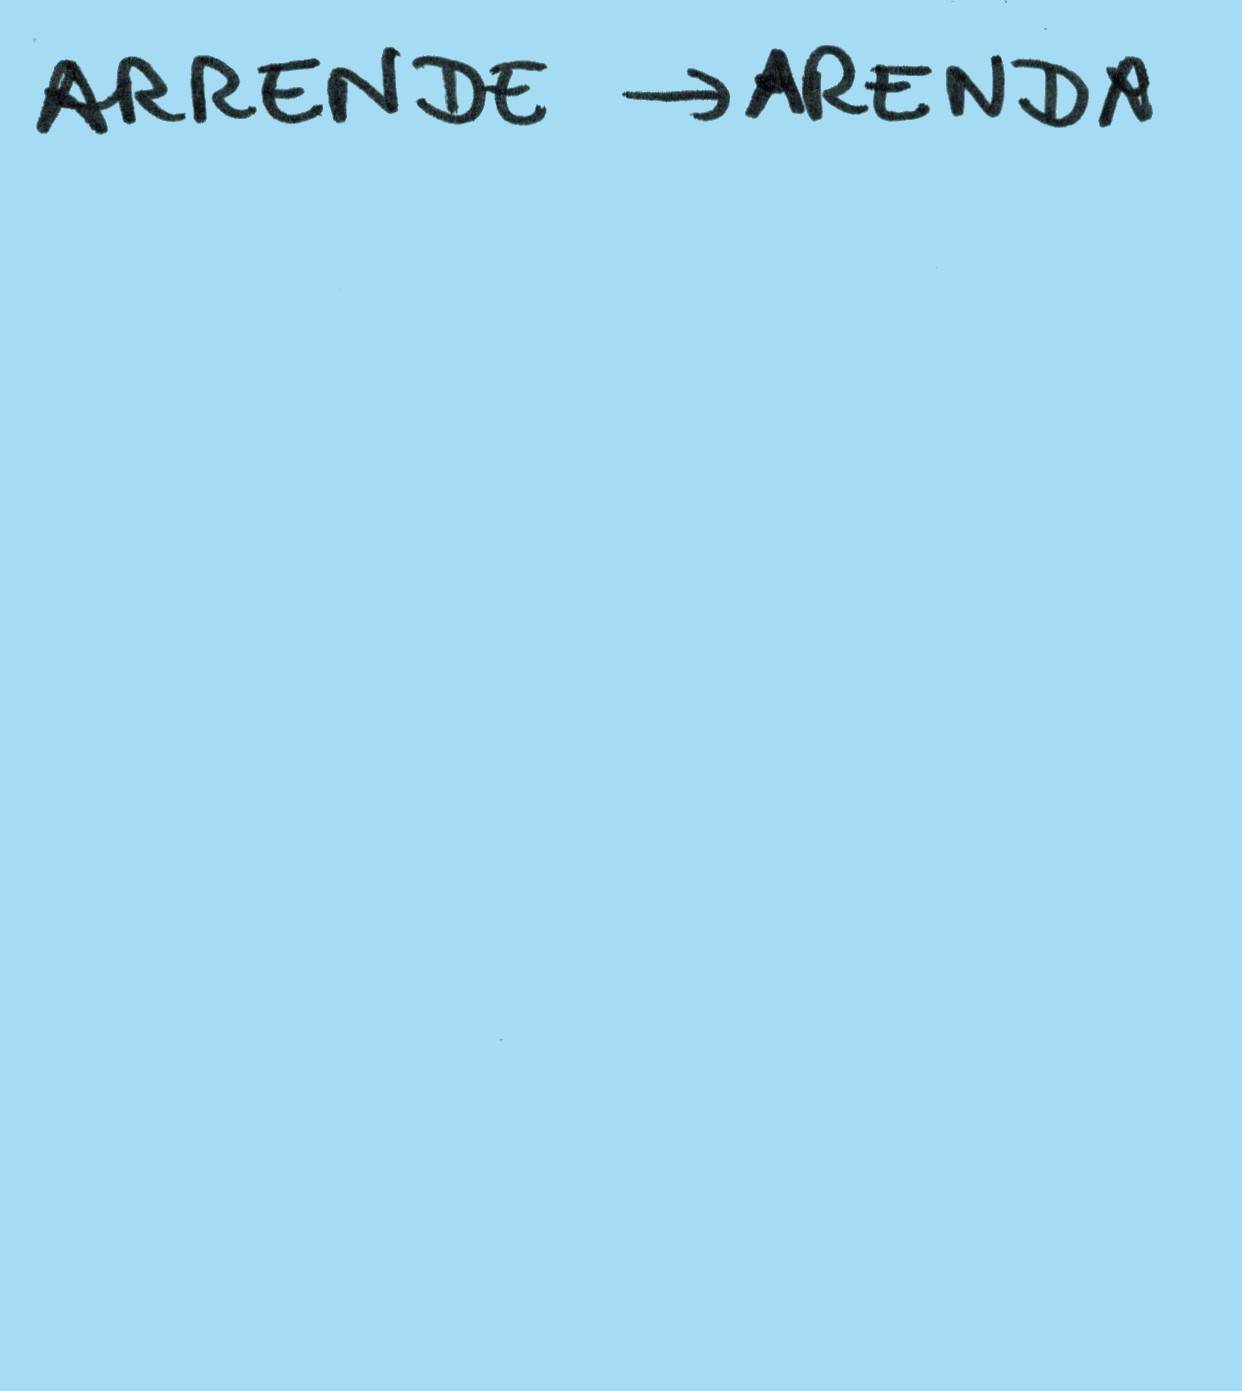 ARRENDE → ARENDA